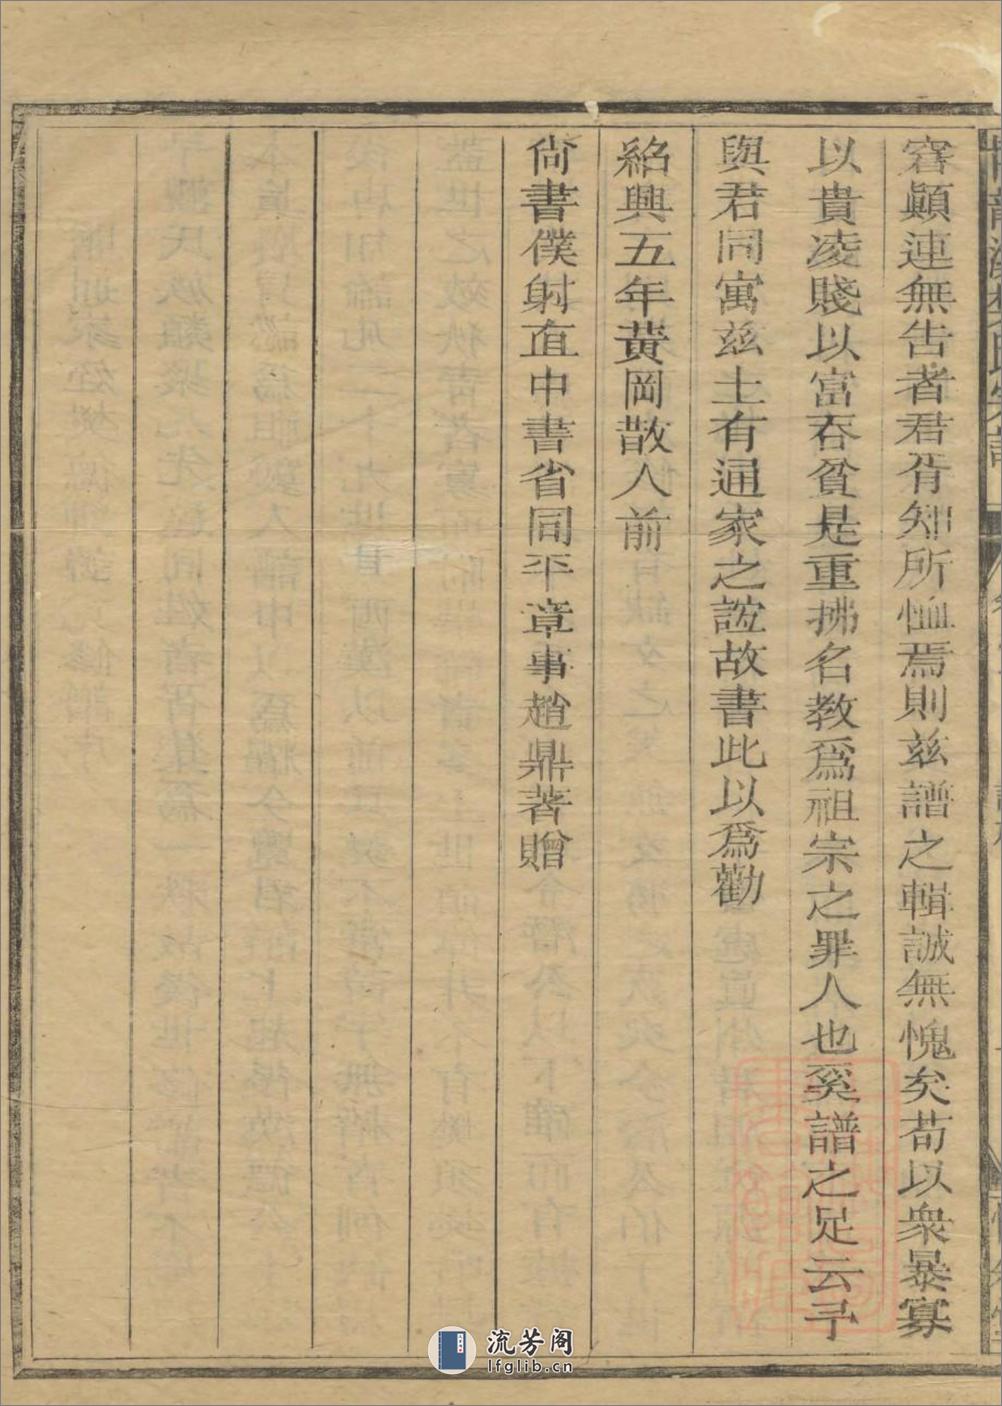 窘顛連無告者君胥知所恤焉則茲譜之輯誠無愧矣苟以衆暴寡
以貴凌賤以富吞貧是重拂名教爲祖宗之罪人也奚譜之足云予
與君同寓茲土有通家之誼故書此以爲勸
紹興五年黃岡散人前
尙書僕射直中書省同平章事趙鼎著贈
流芳阁
lfglib.cn